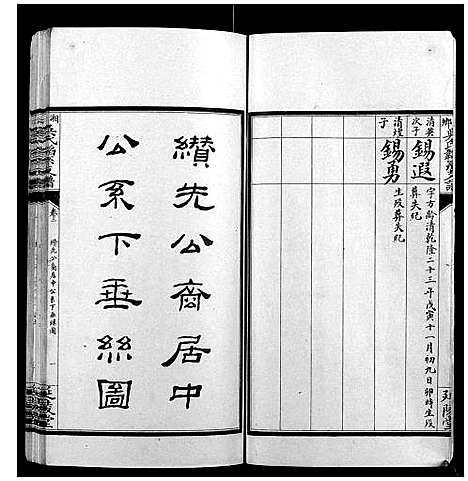 清英
次子
錫遐
字方齡清乾隆二十三年戊寅十一月初九日卯時生歿
葬失紀
清瑝
子
錫勇
生歿葬失紀
延陵堂
纘先公裔居中
公系下垂絲圖
卷三
纘先公裔居中公系下垂絲圖
一
延陵堂